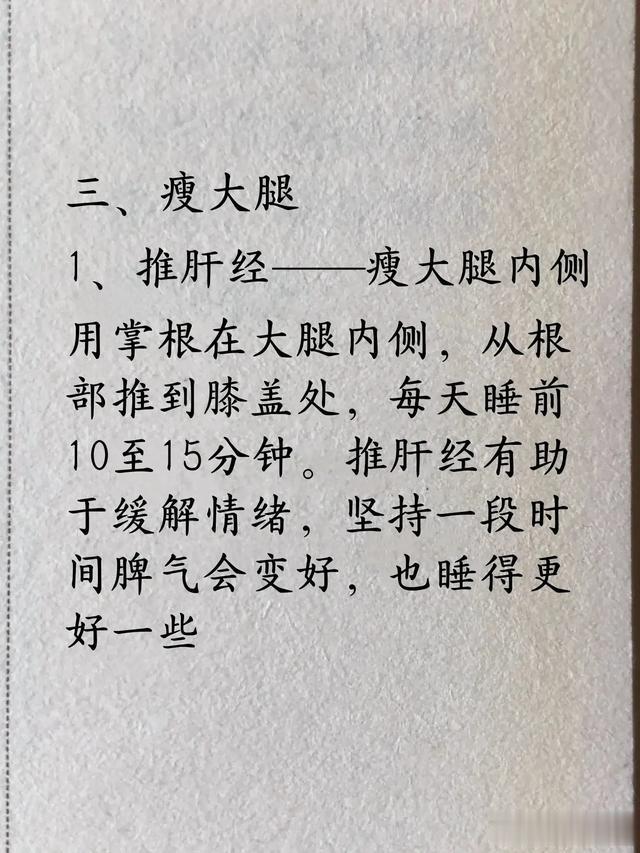 三、瘦大腿
1、推肝经——瘦大腿内侧
用掌根在大腿内侧，从根
部推到膝盖处，每天睡前
10至15分钟。推肝经有助
于缓解情绪，坚持一段时
间脾气会变好，也睡得更
好一些